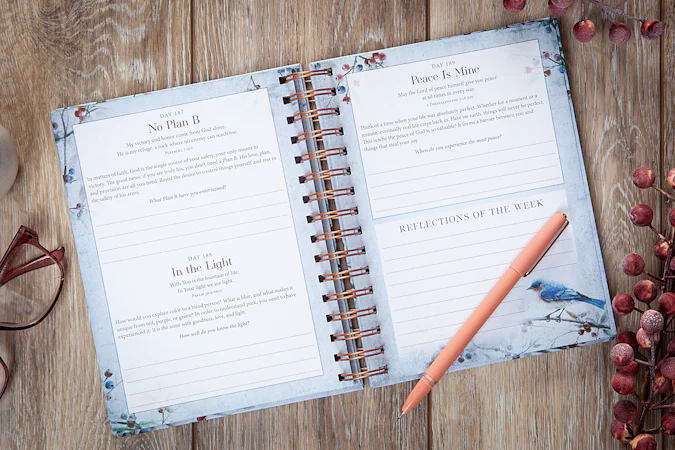 DAY 187
No Plan B
My victory and honor come from God alone.
He is my refuge, a rock where no enemy can reach me.
PSALM 62:7 NLT
In matters of faith, God is the single source of your safety, your only means to
victory. The good news: if you are truly his, you don't need a Plan B. His love, plan,
and provision are all you need. Resist the desire to control things yourself and rest in
the safety of his arms.
What Plan B have you entertained?
DAY 188
In the Light
With You is the fountain of life.
In Your light we see light.
PSALM 36:9
How would you explain color to a blind person? What is blue, and what makes it
unique from red, purple, or green? In order to understand pink, you need to have
experienced it. It is the same with goodness, love, and light.
How well do you know the light?
DAY 189
Peace Is Mine
May the Lord of peace himself give you peace
at all times in every way.
2 THESSALONIANS 3:16
Think of a time when your life was absolutely perfect. Whether for a moment or a
minute, eventually real life crept back in. Here on earth, things will never be perfect.
This is why the peace of God is so valuable! It forms a barrier between you and
things that steal your joy.
When do you experience the most peace?
REFLECTIONS OF THE WEEK